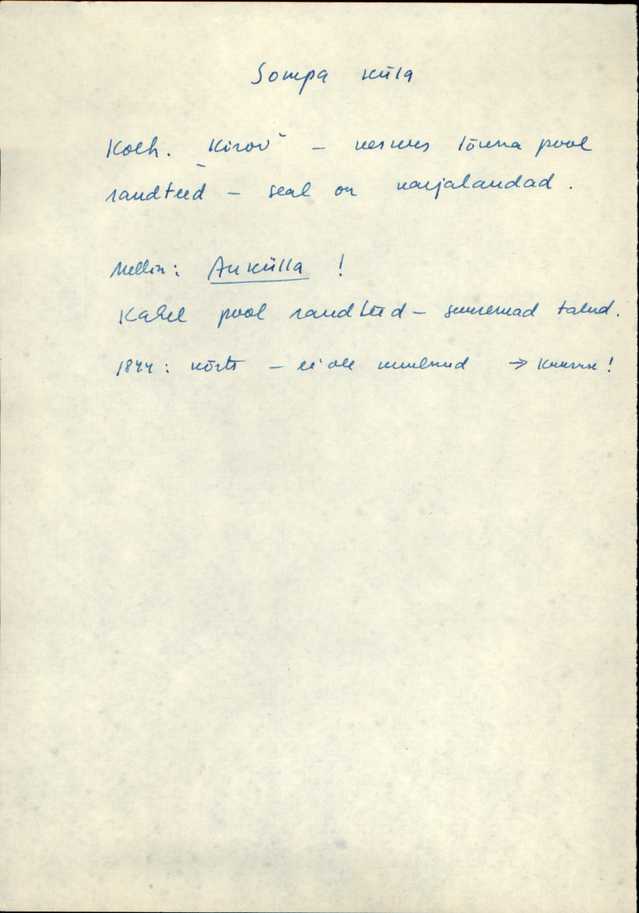 Sompa küla
Kolh. "Kirov" – keskus lõuna pool
randteed – seal on karjalaudad.
Mellin: Aukülla !
Kahel pool randteed – suuremad talud.
1844: kõrts – ei ole kuulnud →